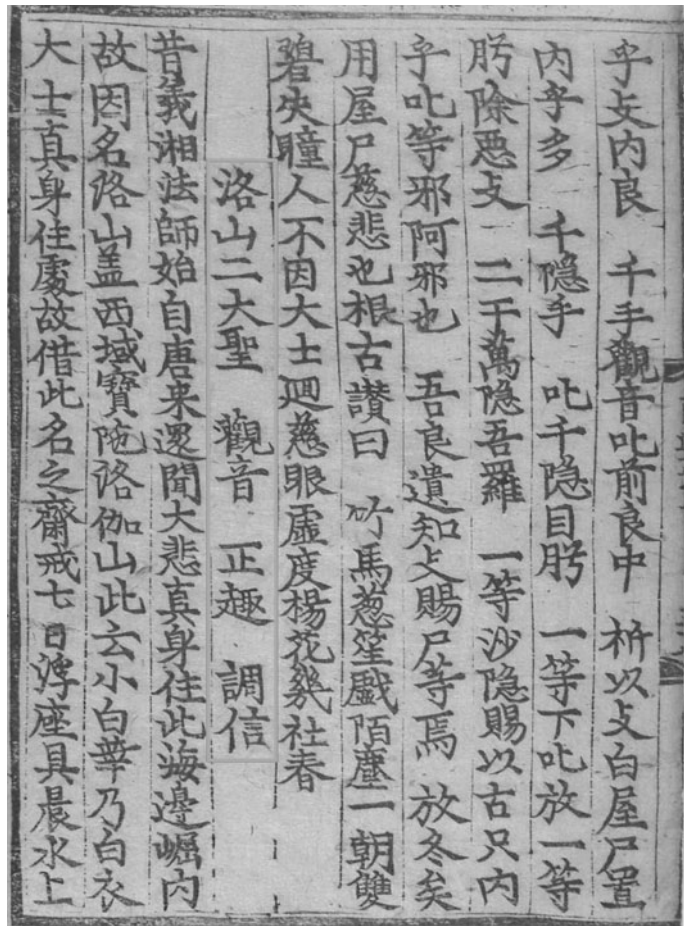 乎攴内良　千手觀音叱前良中　祈以攴白屋尸置
内乎多　千隠手　叱千隠目肹　一等下叱放一等
肹除悪攴　二于萬隠吾羅　一等沙隠賜以古只内
乎叱等邪阿邪也　吾良遺知攴賜尸等焉　放冬矣
用屋尸慈悲也根古讃曰　竹馬葱笙戱陌塵一朝雙
碧失瞳人不因大士迴慈眼虛度楊花幾社春
洛山二大聖　觀音　正趣　調信
昔義湘法師始自唐来還聞大悲真身住此海邊崛内
故因名洛山盖西域寳陁洛伽山此云小白華乃白衣
大士真身住處故借此名之齋戒七日浮座具晨水上